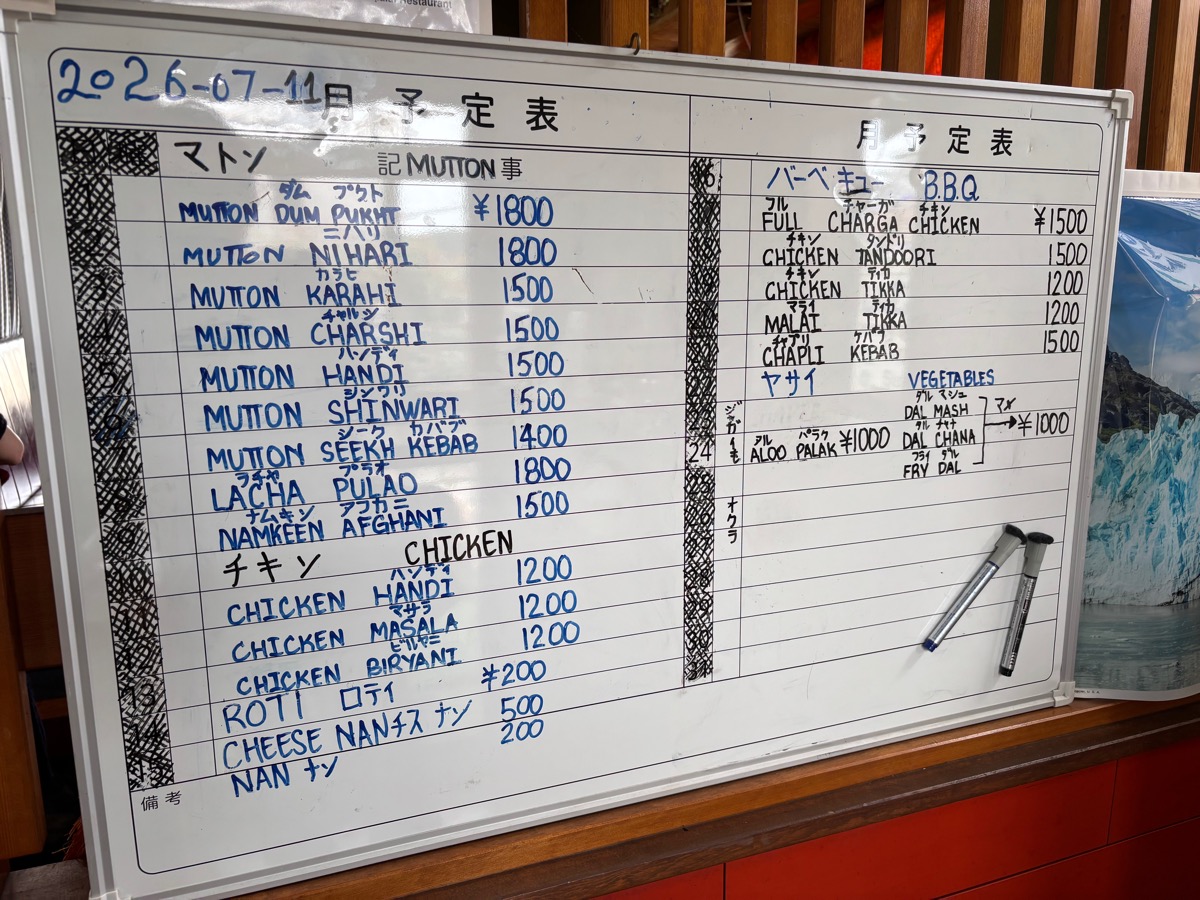 Restaurant
2026-07-11月 予 定 表
マトン 記 MUTTON 事
ダム プクト
MUTTON DUM PUKHT ¥1800
ニハリ
MUTTON NIHARI 1800
カラヒ
MUTTON KARAHI 1500
チャルシ
MUTTON CHARSHI 1500
ハンディ
MUTTON HANDI 1500
シンワリ
MUTTON SHINWARI 1500
シーク カバブ
MUTTON SEEKH KEBAB 1400
プラオ
LACHA PULAO 1800
ナムキン アフカニ
NAMKEEN AFGHANI 1500
チキン CHICKEN
ハンディ
CHICKEN HANDI 1200
マサラ
CHICKEN MASALA 1200
ビルヤニ
CHICKEN BIRYANI 1200
ROTI ロティ ¥200
CHEESE NAN チス ナン 500
NAN ナン 200
備考
月 予 定 表
バーベキュー B.B.Q
フル チャーガ チキン
FULL CHARGA CHICKEN ¥1500
チキン タンドリ
CHICKEN TANDOORI 1500
チキン ティカ
CHICKEN TIKKA 1200
マライ ティカ
MALAI TIKKA 1200
チャプリ ケバブ
CHAPLI KEBAB 1500
ヤサイ VEGETABLES
ダル マシュ
DAL MASH
ダル チャナ
DAL CHANA
フライ ダル
FRY DAL
マメ
¥1000
ジャガイモ
24
アル パラク
ALOO PALAK ¥1000
オクラ